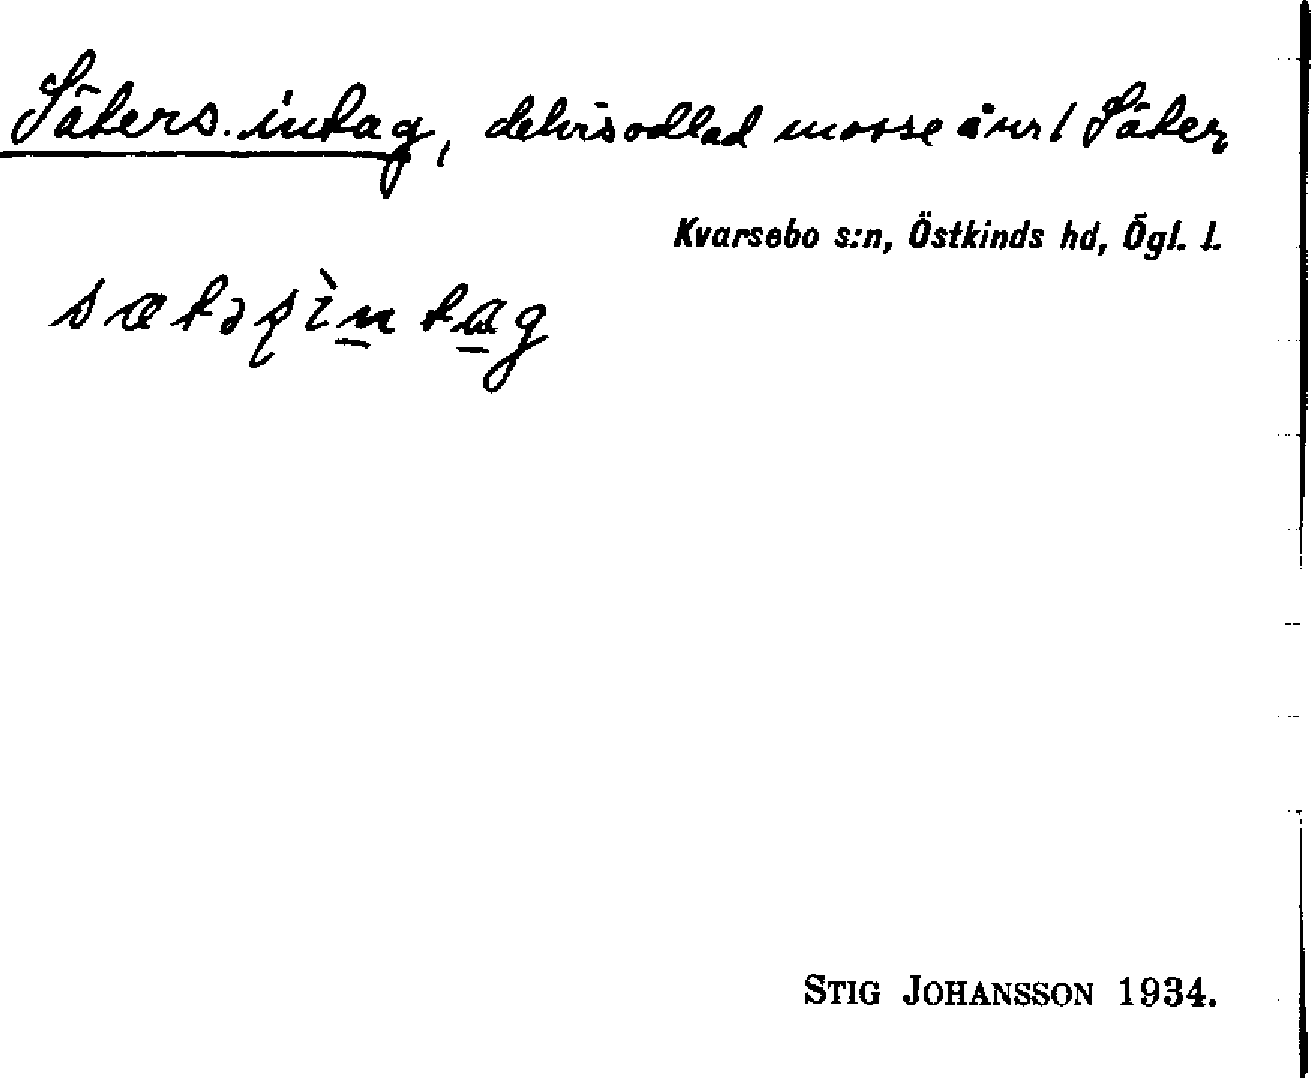 Säters intag, delvis odlad mosse å nr 1 Säter
Kvarsebo s:n, Östkinds hd, Ögl. l.
sætəʂìntag
STIG JOHANSSON 1934.